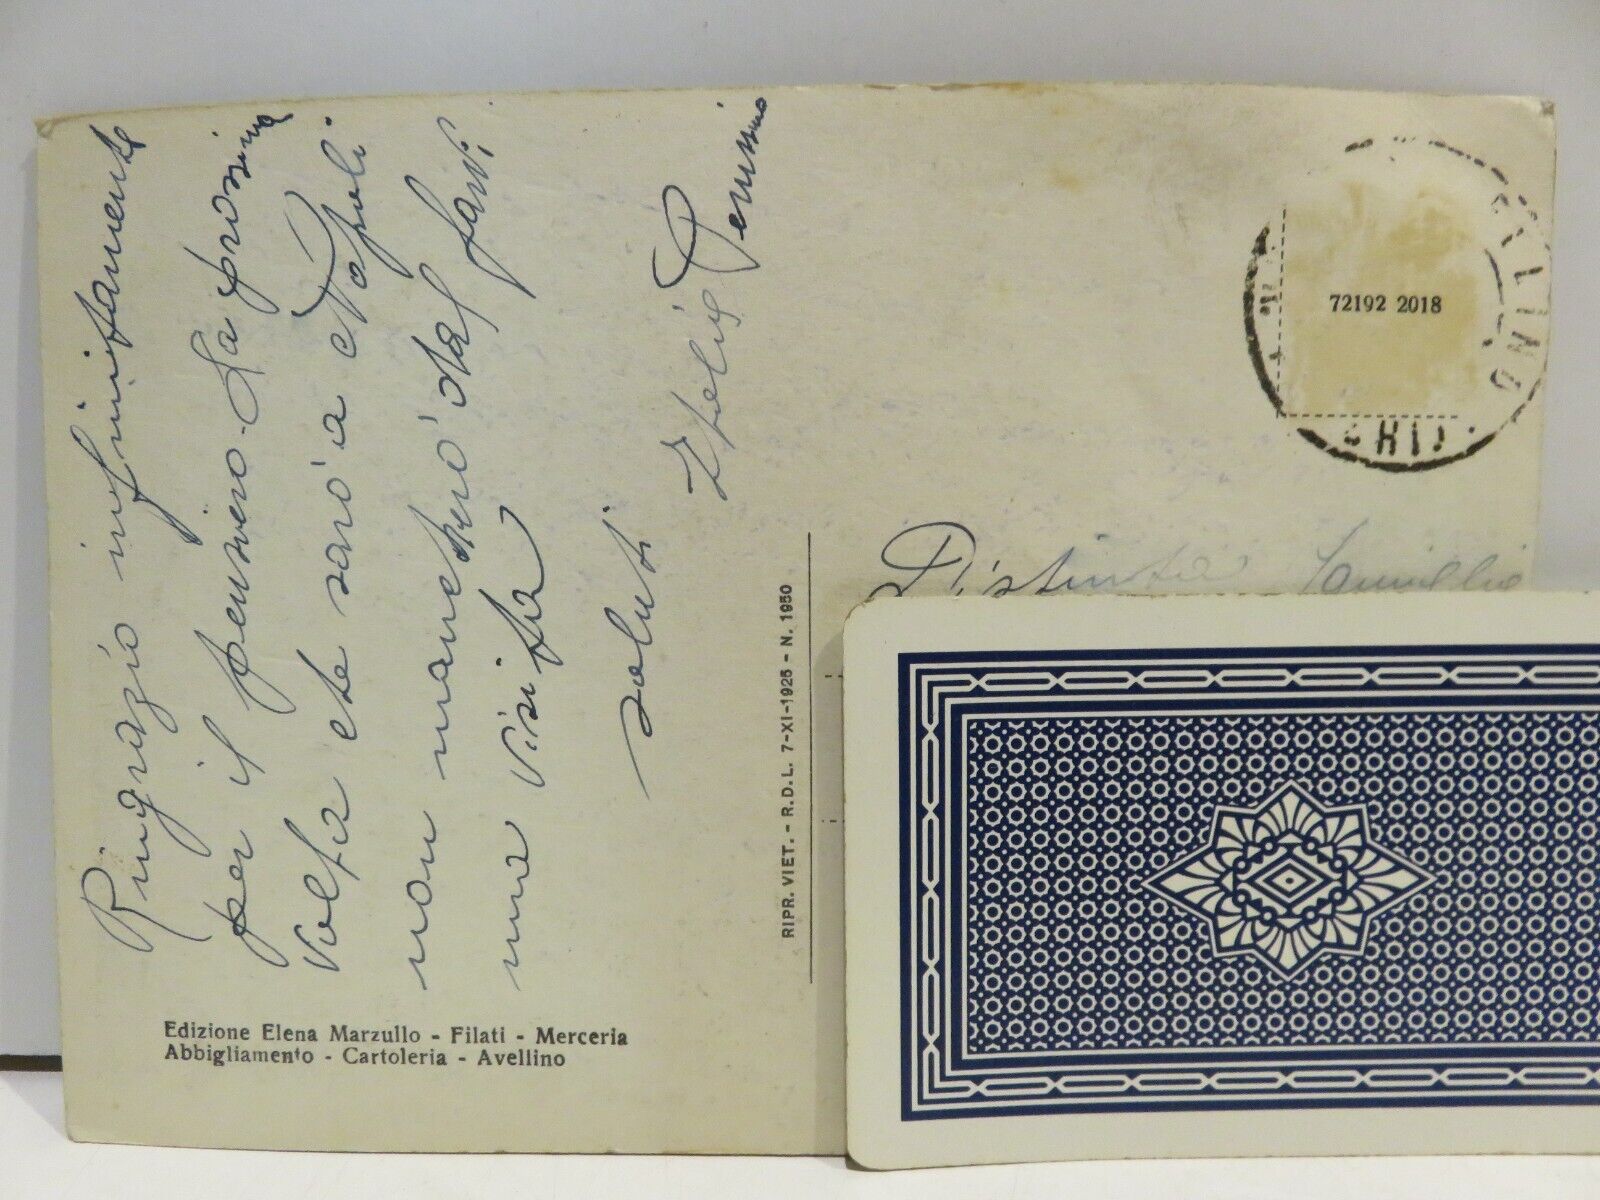 Ringrazio infinitamente
per il pensiero. La prossima
volta che sarò a Napoli
non mancherò dal farvi
una visita
saluti
Pernissino
Distinta Famiglia
72192 2018
RIPR. VIET. - R.D.L. 7-XI-1925 - N. 1950
Edizione Elena Marzullo - Filati - Merceria
Abbigliamento - Cartoleria - Avellino